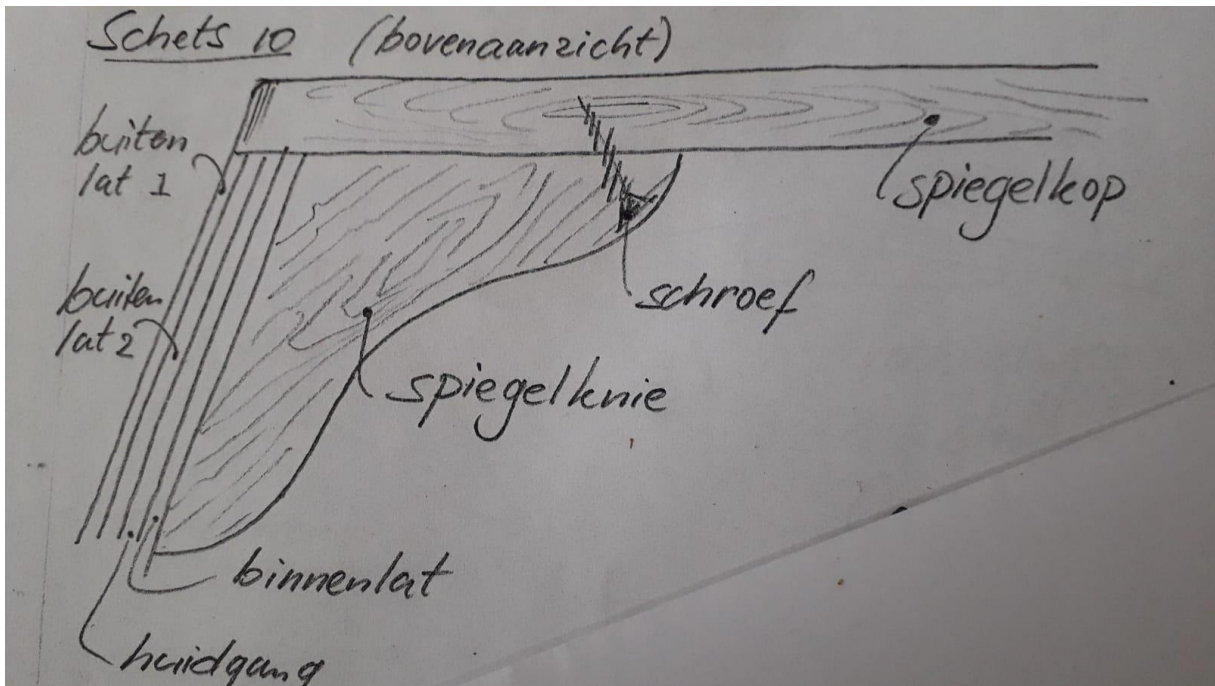 Schets 10 (bovenaanzicht)
buiten
lat 1
spiegelkop
buiten
lat 2
schroef
spiegelknie
binnenlat
huidgang